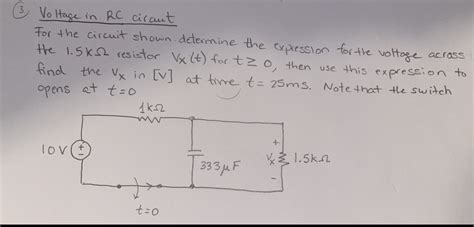 ③ Voltage in RC circuit
For the circuit shown determine the expression for the voltage across
the 1.5kΩ resistor Vx(t) for t ≥ 0, then use this expression to
find the Vx in [V] at time t = 25ms. Note that the switch
opens at t=0
1kΩ
10V
+
-
333μF
+
Vx
-
1.5kΩ
t=0